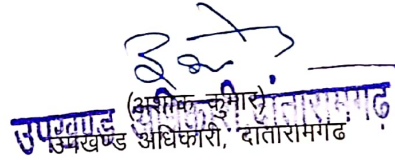 (अशोक कुमार)
उपखण्ड अधिकारी, दांतारामगढ
उपखण्ड अधिकारी दांतारामगढ़